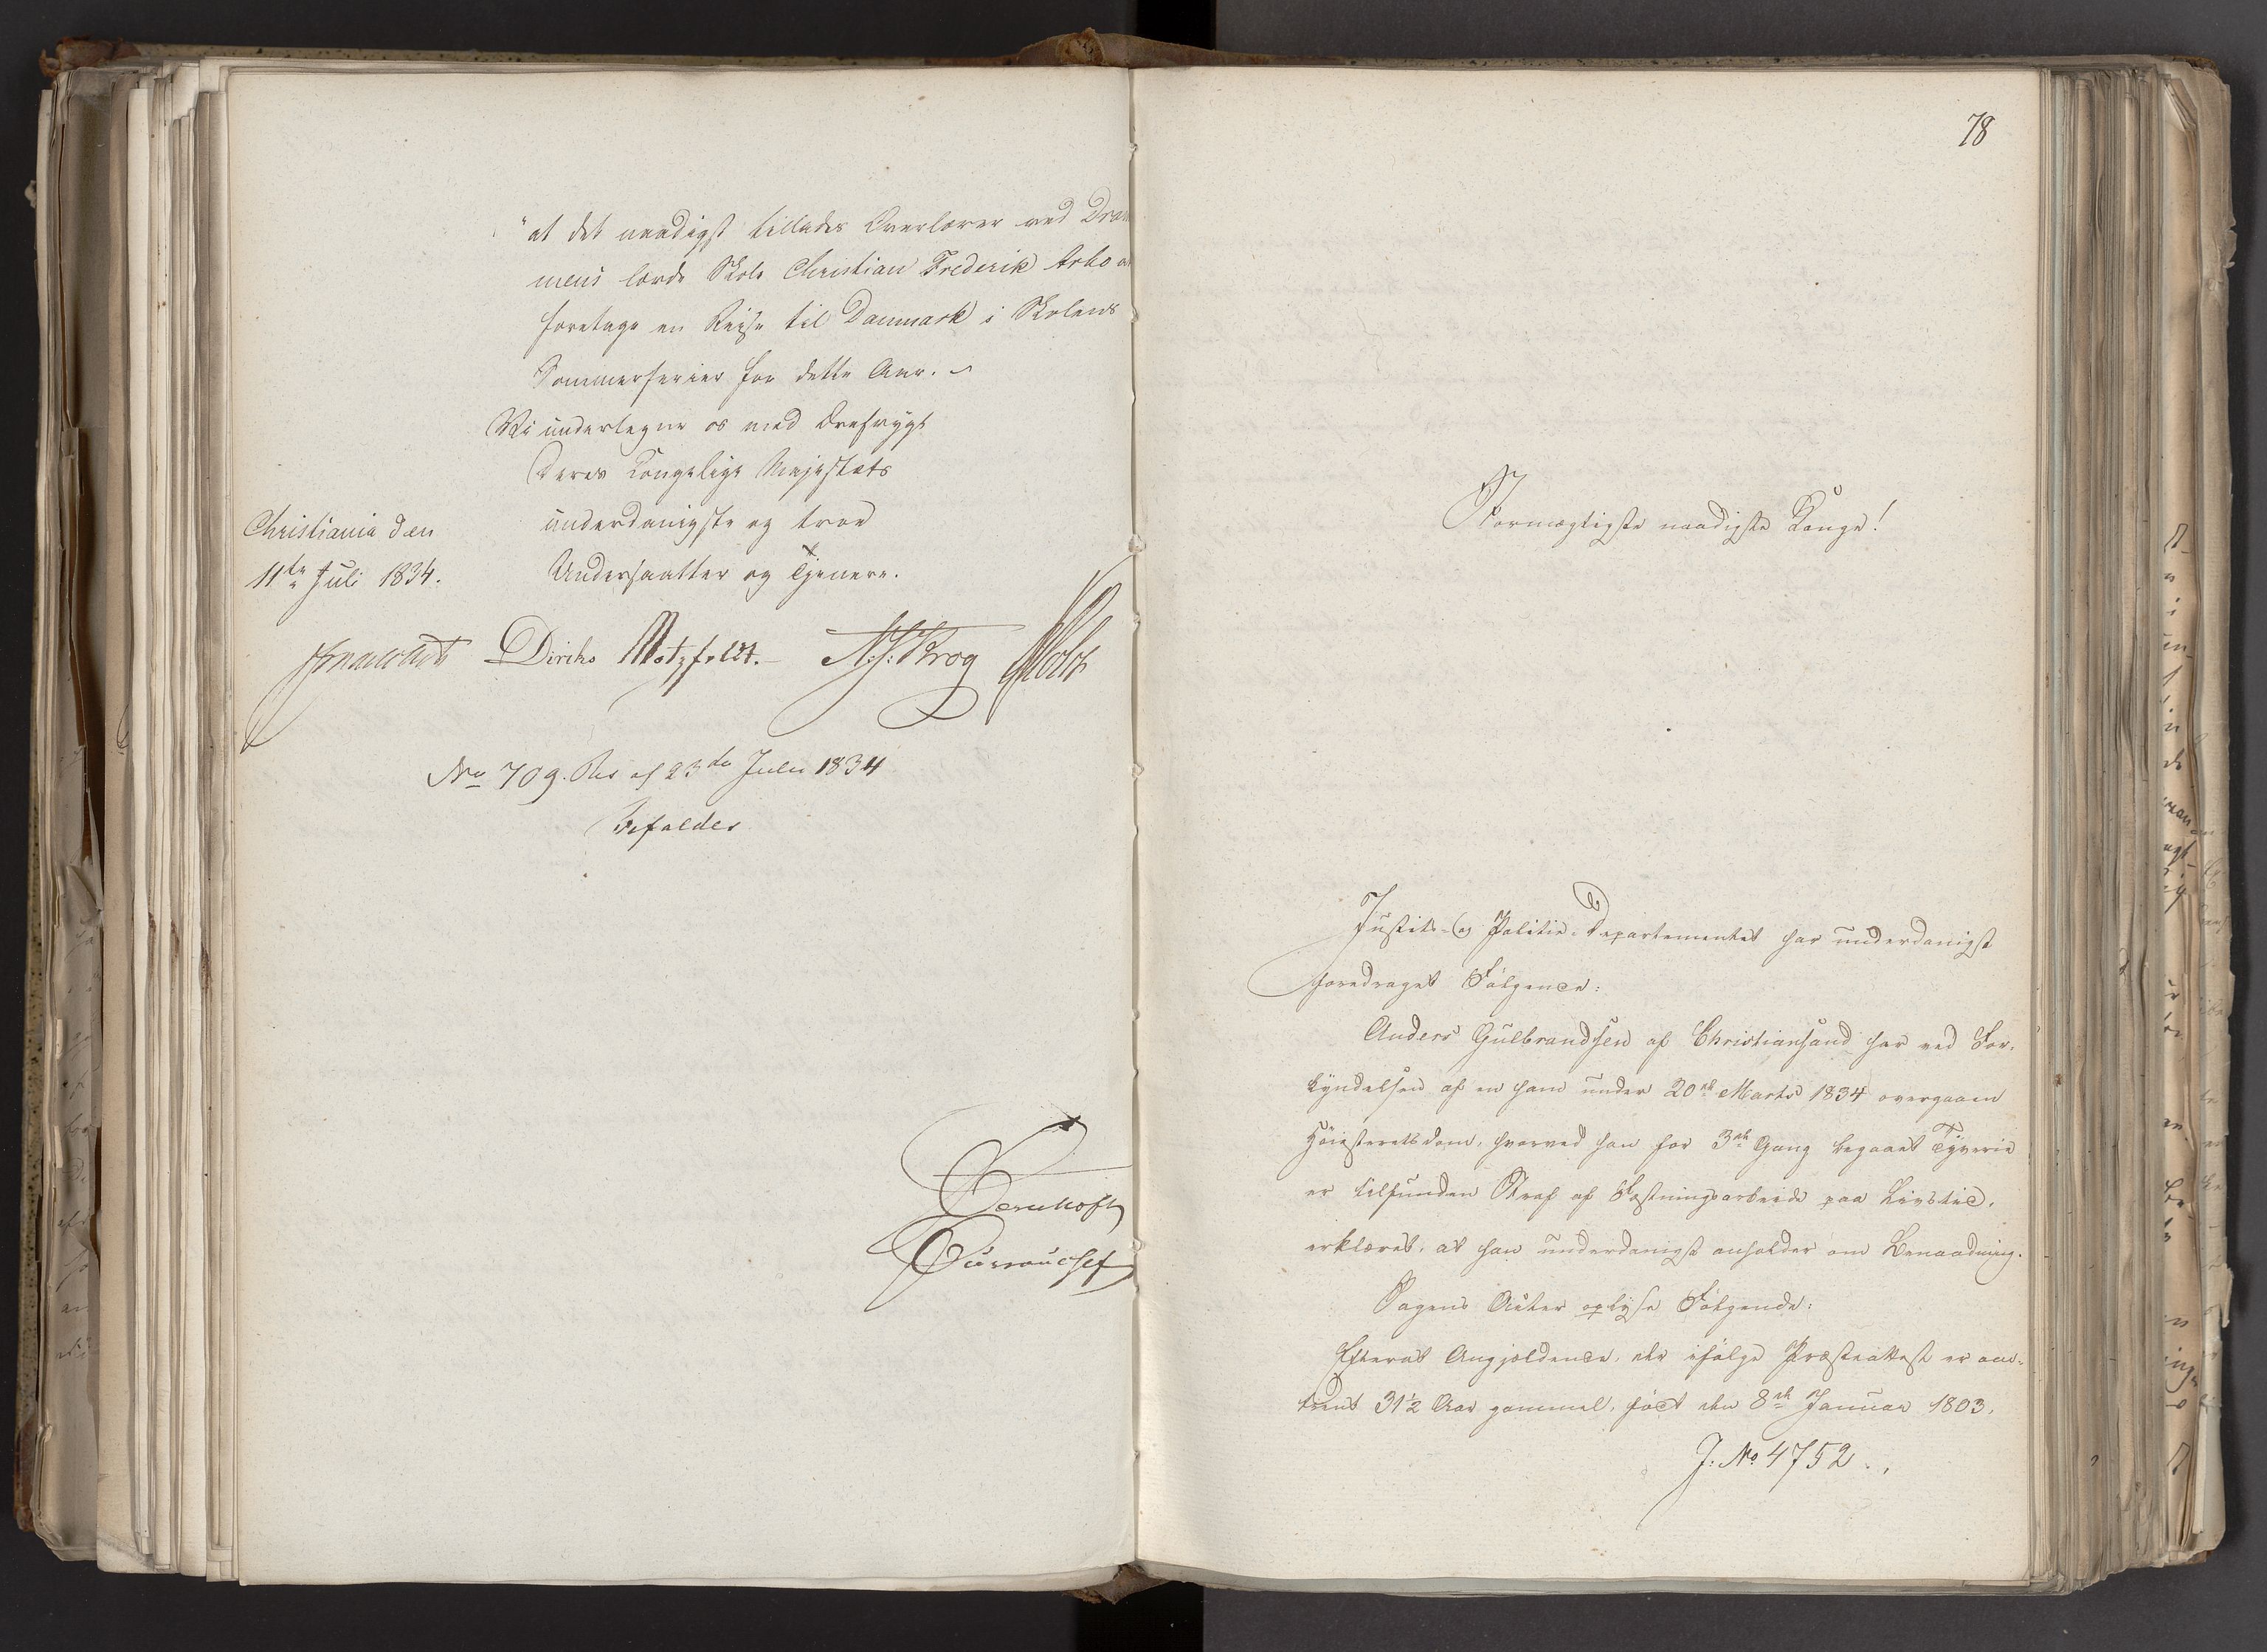 "at det naadigst tillades Overlærer ved Dram
mens lærde Skole Christian Frederik Arbo at
foretage en Reise til Danmark i Skolens
Sommerferier for dette Aar.
Vi undertegne os med Ærefrygt
Deres Kongelige Majestæts
underdanigste og troe
Undersaatter og Tjenere.
Christiania den
11te Juli 1834.
Diriks Motzfeldt. N. J. Krog Holst
No 709. Res af 23de Julii 1834
bifaldes
78
Stormægtigste naadigste Konge!
Justits- og Politie-Departementet har underdanigst
foredraget Følgende:
Anders Gulbrandsen af Christiansand har ved For-
kyndelsen af en ham under 20de Marts 1834 overgaaen
Høiesteretsdom, hvorved han for 3de Gang begaaet Tyverie
er tilfunden Straf af Fæstningsarbeide paa Livstid,
erklæret, at han underdanigst anholder om Benaadning.
Sagens Acter oplyse Følgende:
Efterat Angjældende, der ifølge Præsteattest er om-
trent 31½ Aar gammel, født den 8de Januar 1803,
J: No 4752.